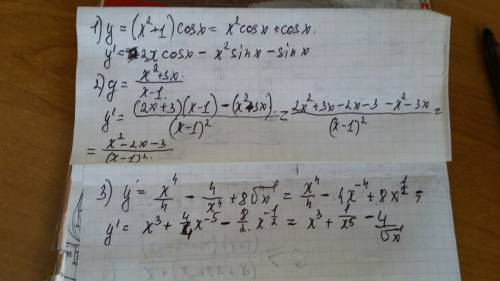 1) y = (x²+1) cosx = x² cosx + cosx.
y' = 2x cosx - x² sinx - sinx
2) y = (x²+3x)/(x-1)
y' = ((2x+3)(x-1) - (x²+3x))/(x-1)² = (2x²+3x-2x-3-x²-3x)/(x-1)² =
= (x²-2x-3)/(x-1)²
3) y = x⁴/4 - 4/x⁴ + 8√x = x⁴/4 - 4x⁻⁴ + 8x^(1/2) =
y' = x³ + 4x⁻⁵ - 8/2 x^(-1/2) = x³ + 4/x⁵ - 4/√x